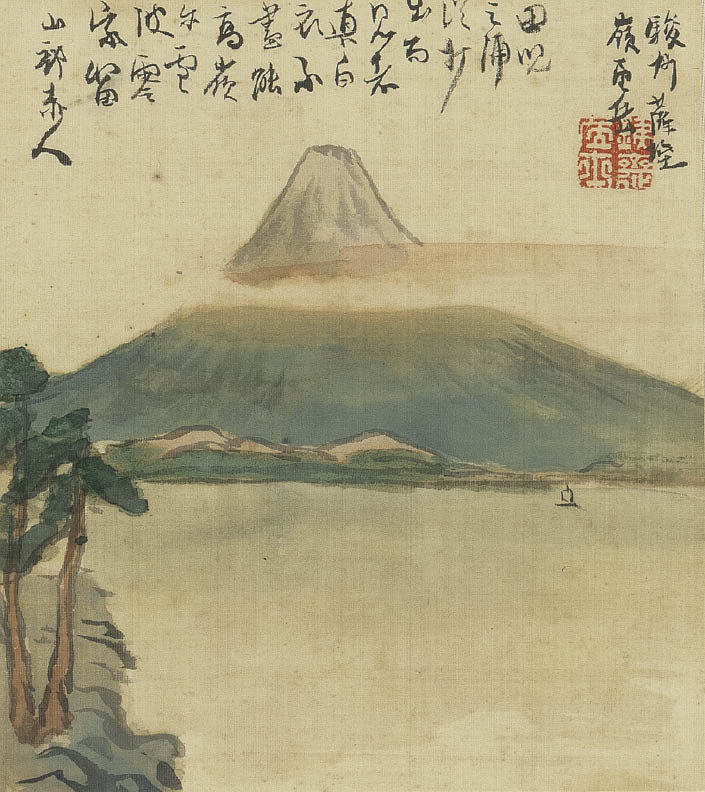 駿州薩埵
嶺
田児
之浦
従打
出而
見者
真白
衣不
盡能
高嶺
尓雪
波零
家留
山部赤人